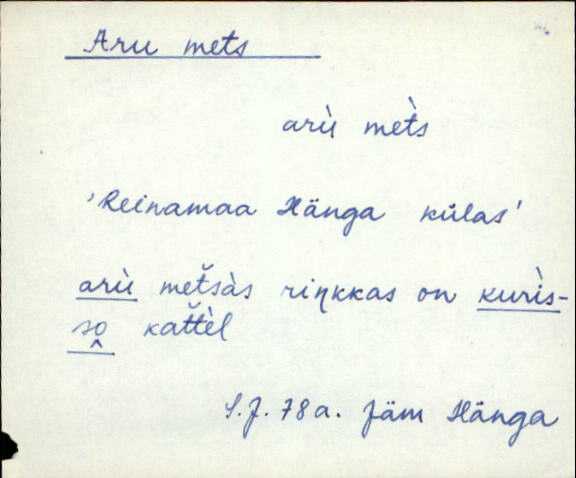 Aru mets
arù mèts
'Reinamaa Hänga külas'
arù metšàs riŋkkas on kurìs-
so kattèl
S.J. 78a. Jäm Hänga